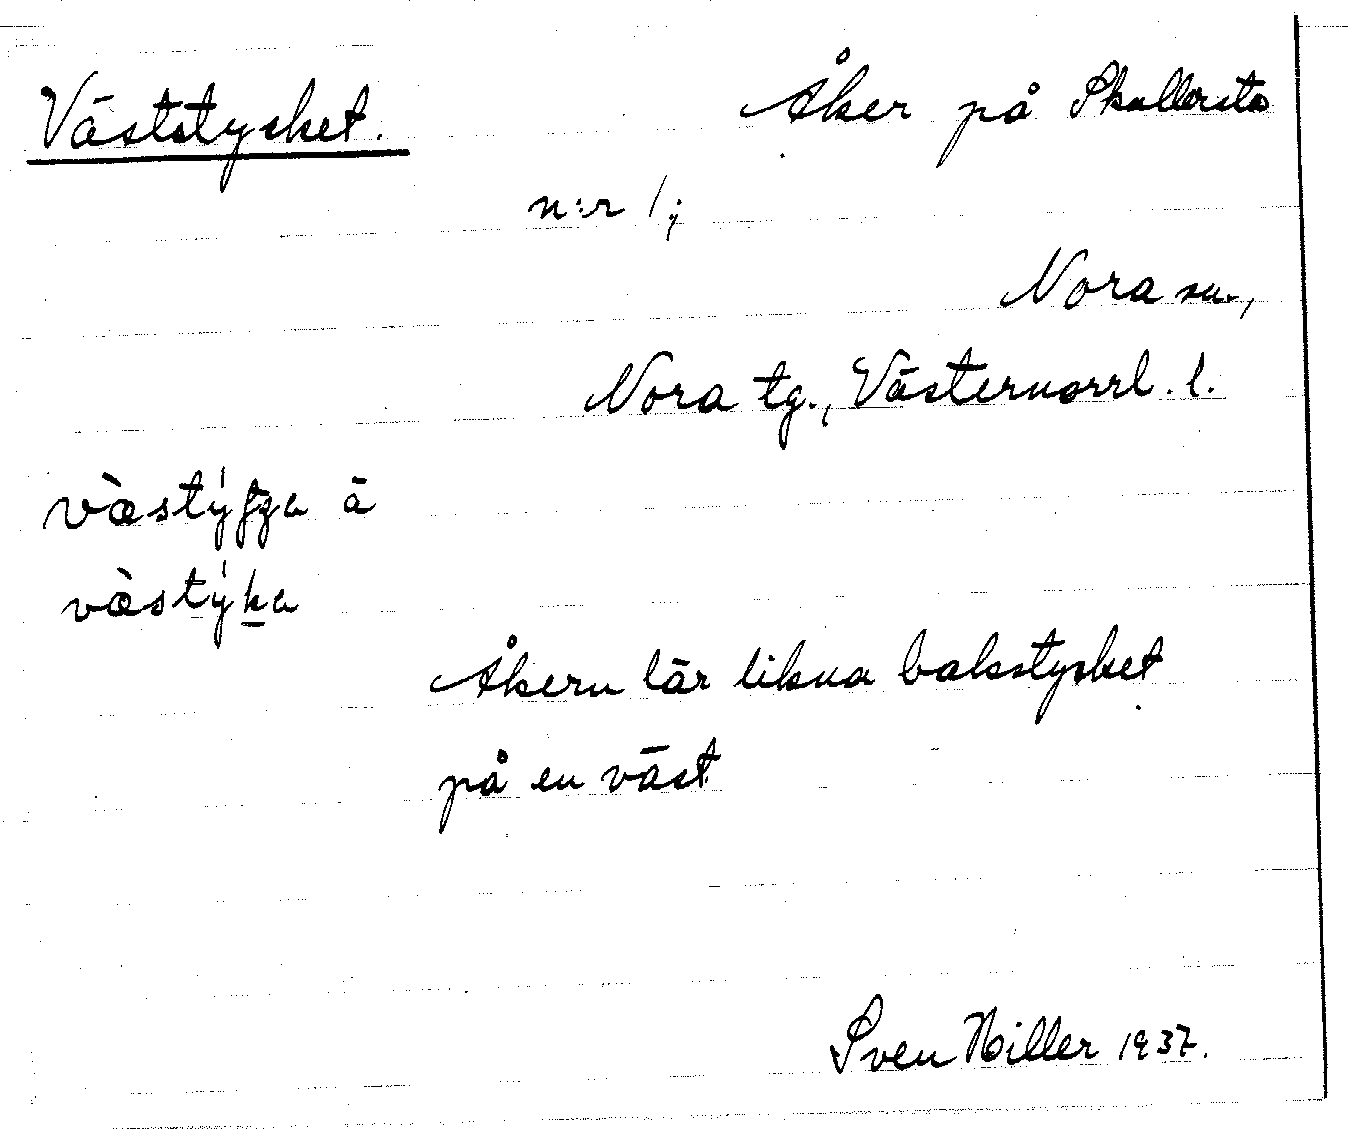 Väststycket.
Åker på Skullersta
n:r 1;
Nora sn.,
Nora tg., Västernorrl. l.
Åkern lär likna bakstycket
på en väst
Sven Hiller 1937.